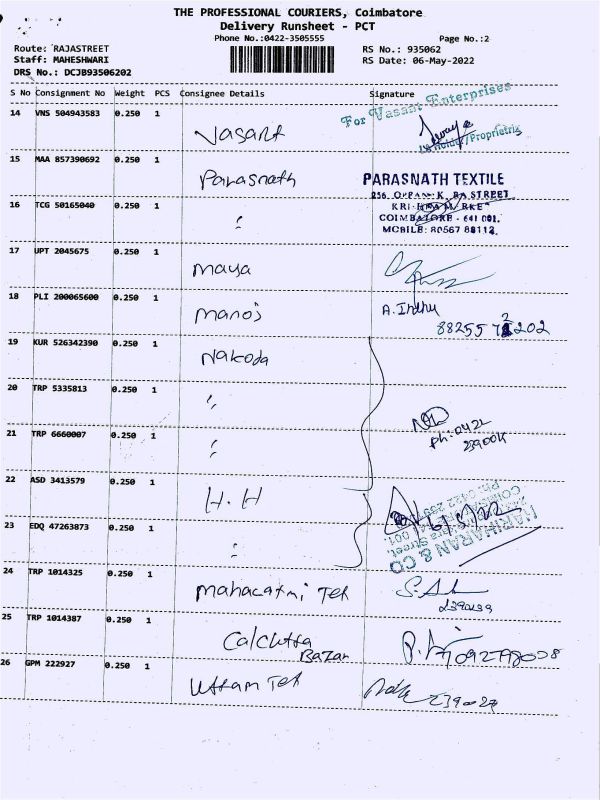 THE PROFESSIONAL COURIERS, Coimbatore
Delivery Runsheet - PCT
Phone No.:0422-3505555
Page No.:2
Route: RAJASTREET
RS No.: 935062
Staff: MAHESHWARI
RS Date: 06-May-2022
DRS No.: DCJB93506202
S No Consignment No Weight PCS Consignee Details Signature
14 VNS 504943583 0.250 1 Vasant
For Vasant Enterprises
/Proprietrix
15 MAA 857390692 0.250 1 Parasnath
PARASNATH TEXTILE
STREET
COIMBATORE - 641 001.
MOBILE: 80567 88112.
16 TCG 50165040 0.250 1 "
17 UPT 2045675 0.250 1 Maya
18 PLI 200065600 0.250 1 Manoj
A. Indhu
19 KUR 526342390 0.250 1 Nakoda
20 TRP 5335813 0.250 1 "
21 TRP 6660007 0.250 1 "
Ph: 0422
22 ASD 3413579 0.250 1 H.H
6/5/22
HARIHARAN & CO
23 EDQ 47263873 0.250 1 "
24 TRP 1014325 0.250 1 Mahacatmi Tex
25 TRP 1014387 0.250 1 Calchtta
Bazar
26 GPM 222927 0.250 1 Uttam Tex